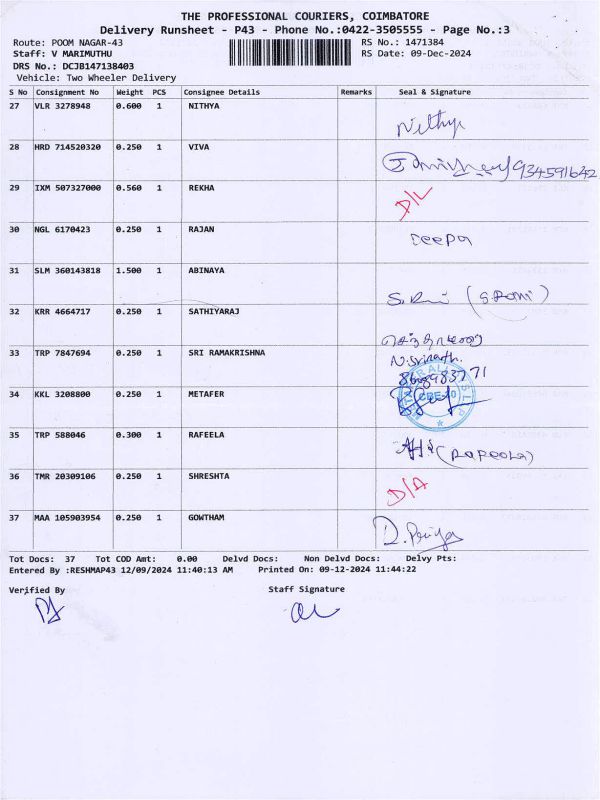 THE PROFESSIONAL COURIERS, COIMBATORE
Delivery Runsheet - P43 - Phone No.:0422-3505555 - Page No.:3
Route: POOM NAGAR-43 RS No.: 1471384
Staff: V MARIMUTHU RS Date: 09-Dec-2024
DRS No.: DCJB147138403
Vehicle: Two Wheeler Delivery
S No Consignment No Weight PCS Consignee Details Remarks Seal & Signature
27 VLR 3278948 0.600 1 NITHYA Nithya
28 HRD 714520320 0.250 1 VIVA 934591642
29 IXM 507327000 0.560 1 REKHA D/L
30 NGL 6170423 0.250 1 RAJAN Deepa
31 SLM 360143818 1.500 1 ABINAYA S.Rani (S.RANI)
32 KRR 4664717 0.250 1 SATHIYARAJ
33 TRP 7847694 0.250 1 SRI RAMAKRISHNA N.Srinath.
8608983771
34 KKL 3208800 0.250 1 METAFER
35 TRP 588046 0.300 1 RAFEELA (RAFEELA)
36 TMR 20309106 0.250 1 SHRESHTA D/A
37 MAA 105903954 0.250 1 GOWTHAM D. Priya
Tot Docs: 37 Tot COD Amt: 0.00 Delvd Docs: Non Delvd Docs: Delvy Pts:
Entered By :RESHMAP43 12/09/2024 11:40:13 AM Printed On: 09-12-2024 11:44:22
Verified By Staff Signature